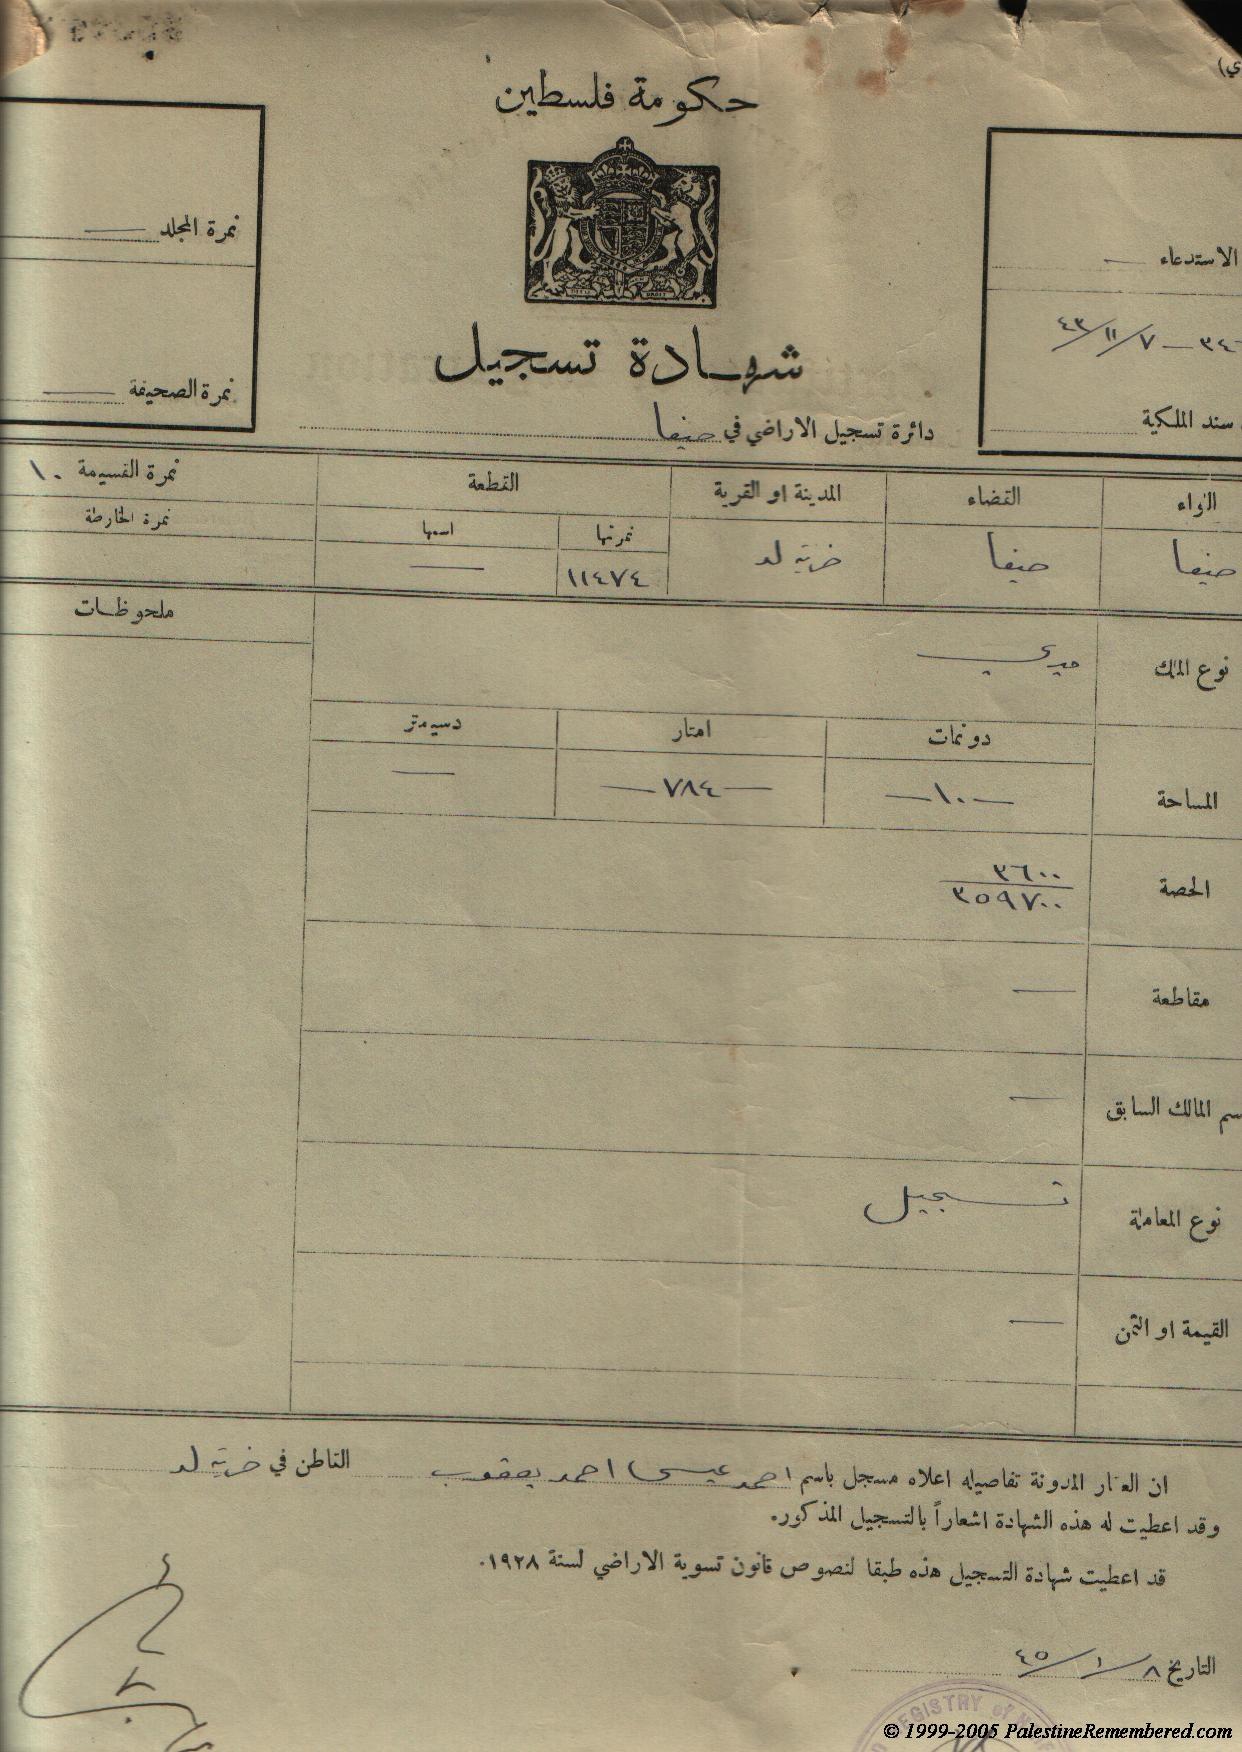 ي)
حكومة فلسطين
نمرة المجلد
الاستدعاء
٤٣/١١/٧ — ٣٤
شهادة تسجيل
نمرة الصحيفة
سند الملكية
دائرة تسجيل الاراضي في حيفا
اللواء
القضاء
المدينة او القرية
القطعة
نمرة القسيمة ١٠
نمرتها
اسمها
نمرة الخارطة
حيفا
حيفا
خربة لد
١١٤٧٤
ملحوظات
نوع الملك
ميري
دونمات
امتار
دسيمتر
المساحة
— ١٠ —
— ٧٨٤ —
الحصة
٣٦٠٠
٣٥٩٧٠٠
مقاطعة
سم المالك السابق
نوع المعاملة
تسجيل
القيمة او الثمن
ان العقار المدونة تفاصيله اعلاه مسجل باسم احمد عيسى احمد يعقوب القاطن في خربة لد
وقد اعطيت له هذه الشهادة اشعاراً بالتسجيل المذكور.
قد اعطيت شهادة التسجيل هذه طبقا لنصوص قانون تسوية الاراضي لسنة ١٩٢٨.
التاريخ ٨/١/٤٥
REGISTRY of
© 1999-2005 PalestineRemembered.com